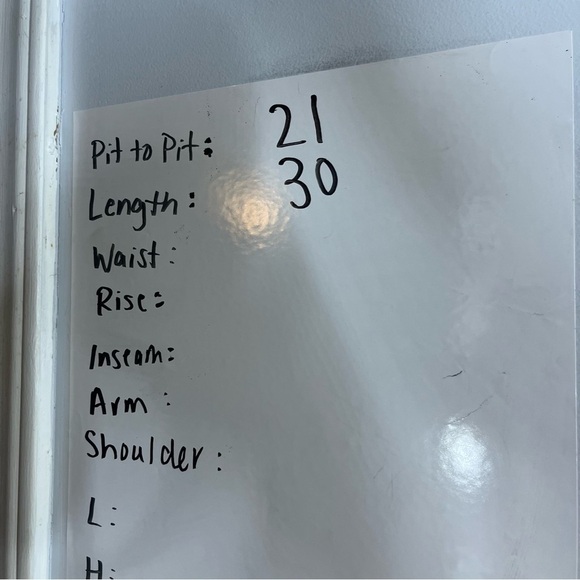 Pit to Pit: 21
Length: 30
Waist:
Rise:
Inseam:
Arm:
Shoulder:
L:
H: